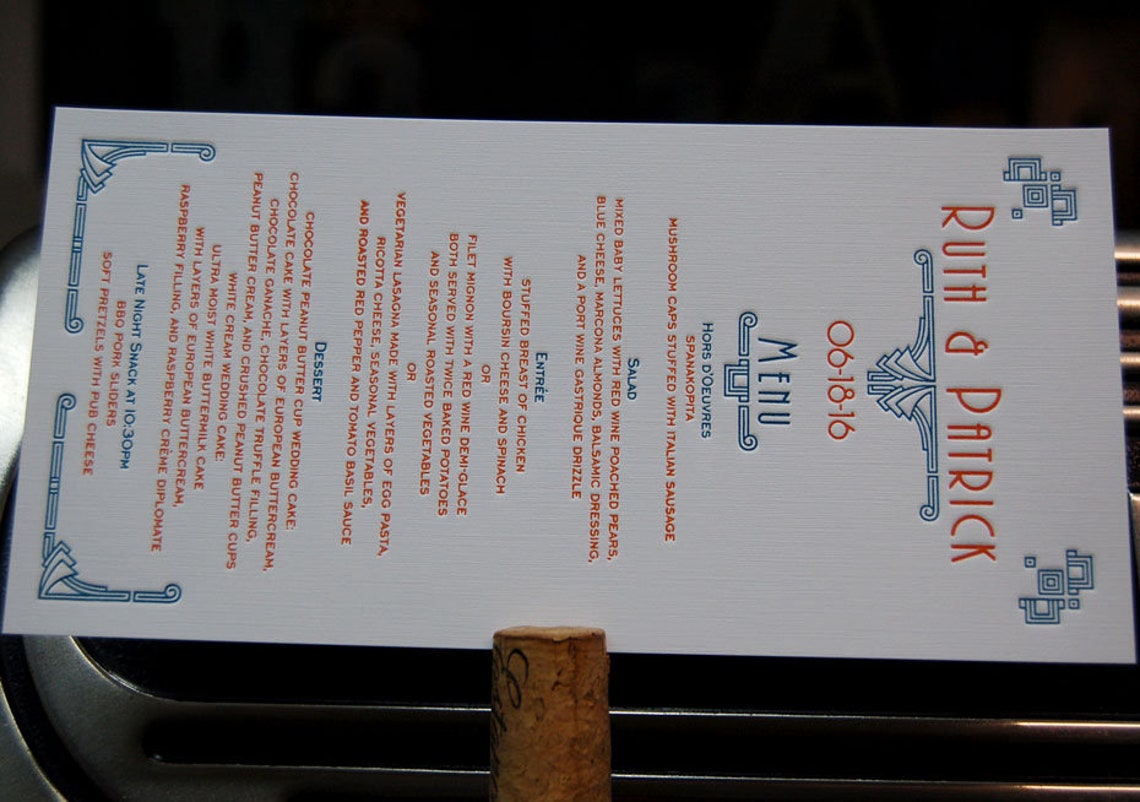 RUTH & PATRICK
06-18-16
MENU
HORS D'OEUVRES
SPANAKOPITA
MUSHROOM CAPS STUFFED WITH ITALIAN SAUSAGE
SALAD
MIXED BABY LETTUCES WITH RED WINE POACHED PEARS,
BLUE CHEESE, MARCONA ALMONDS, BALSAMIC DRESSING,
AND A PORT WINE GASTRIQUE DRIZZLE
ENTRÉE
STUFFED BREAST OF CHICKEN
WITH BOURSIN CHEESE AND SPINACH
OR
FILET MIGNON WITH A RED WINE DEMI-GLACE
BOTH SERVED WITH TWICE BAKED POTATOES
AND SEASONAL ROASTED VEGETABLES
OR
VEGETARIAN LASAGNA MADE WITH LAYERS OF EGG PASTA,
RICOTTA CHEESE, SEASONAL VEGETABLES,
AND ROASTED RED PEPPER AND TOMATO BASIL SAUCE
DESSERT
CHOCOLATE PEANUT BUTTER CUP WEDDING CAKE:
CHOCOLATE CAKE WITH LAYERS OF EUROPEAN BUTTERCREAM,
CHOCOLATE GANACHE, CHOCOLATE TRUFFLE FILLING,
PEANUT BUTTER CREAM, AND CRUSHED PEANUT BUTTER CUPS
WHITE CREAM WEDDING CAKE:
ULTRA MOIST WHITE BUTTERMILK CAKE
WITH LAYERS OF EUROPEAN BUTTERCREAM,
RASPBERRY FILLING, AND RASPBERRY CRÈME DIPLOMATE
LATE NIGHT SNACK AT 10:30PM
BBQ PORK SLIDERS
SOFT PRETZELS WITH PUB CHEESE